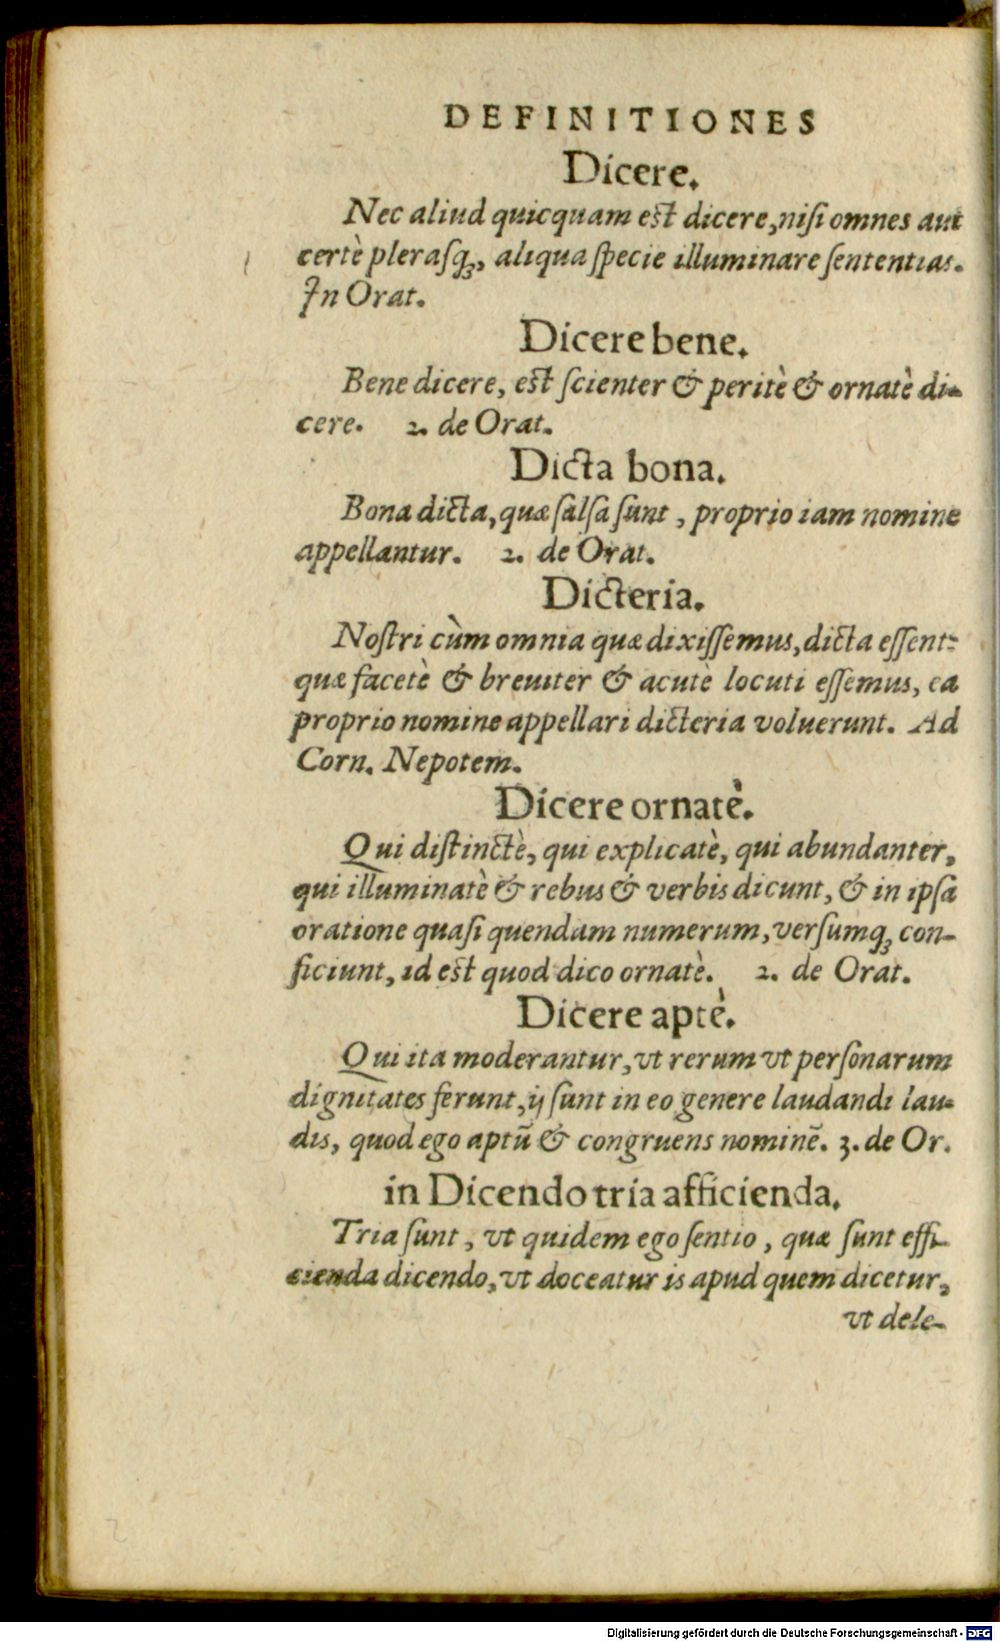 DEFINITIONES
Dicere.
Nec aliud quicquam est dicere, niſi omnes aut
certè pleraſq́3, aliqua ſpecie illuminare ſententias.
In Orat.
Dicere bene.
Bene dicere, est ſcienter & peritè & ornatè di-
cere. 2. de Orat.
Dicta bona.
Bona dicta, quæ ſalſa ſunt, proprio iam nomine
appellantur. 2. de Orat.
Dicteria.
Noſtri cùm omnia quæ dixiſſemus, dicta eſſent:
quæ facetè & breuiter & acutè locuti eſſemus, ea
proprio nomine appellari dicteria voluerunt. Ad
Corn. Nepotem.
Dicere ornatè.
Qui diſtinctè, qui explicatè, qui abundanter,
qui illuminatè & rebus & verbis dicunt, & in ipſa
oratione quaſi quendam numerum, verſumq́3 con-
ficiunt, id est quod dico ornatè. 2. de Orat.
Dicere aptè.
Qui ita moderantur, vt rerum vt perſonarum
dignitates ferunt, ij ſunt in eo genere laudandi lau-
dis, quod ego aptū & congruens nominē. 3. de Or.
in Dicendo tria afficienda.
Tria ſunt, vt quidem ego ſentio, quæ ſunt effi-
cienda dicendo, vt doceatur is apud quem dicetur,
vt dele-
Digitalisierung gefördert durch die Deutsche Forschungsgemeinschaft - DFG